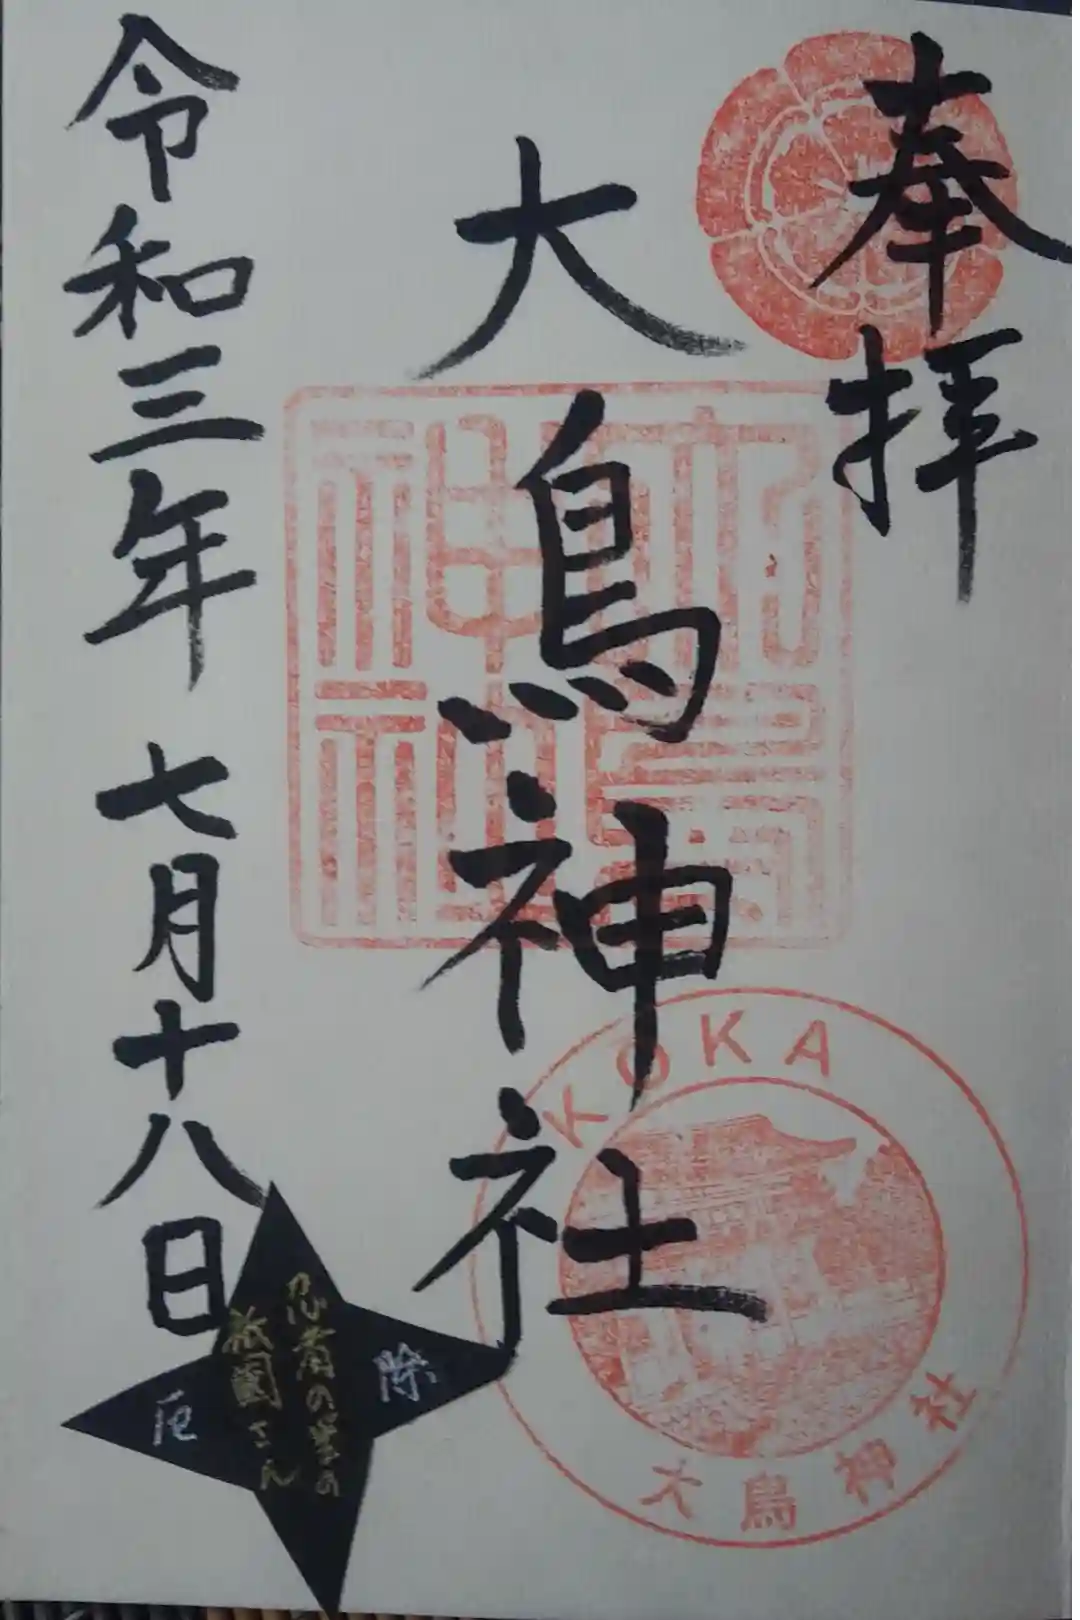 奉拝
大鳥神社
令和三年 七月十八日
忍者の里の
祇園さん
厄除
KOKA
大鳥神社